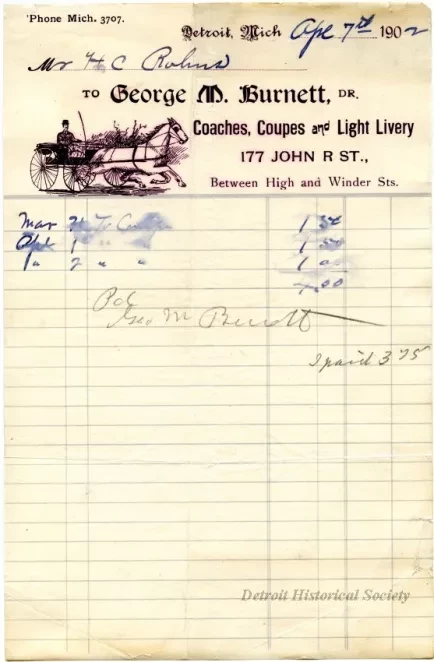 'Phone Mich. 3707.
Detroit, Mich Apr 7th 1902
Mr H C Rohns
TO George M. Burnett, DR.
Coaches, Coupes and Light Livery
177 JOHN R ST.,
Between High and Winder Sts.
Mar To 1 50
Apl 1 " " 1 50
" 2 " " 1 00
4.00
Pd
Geo M Burnett
I paid 3 75
Detroit Historical Society